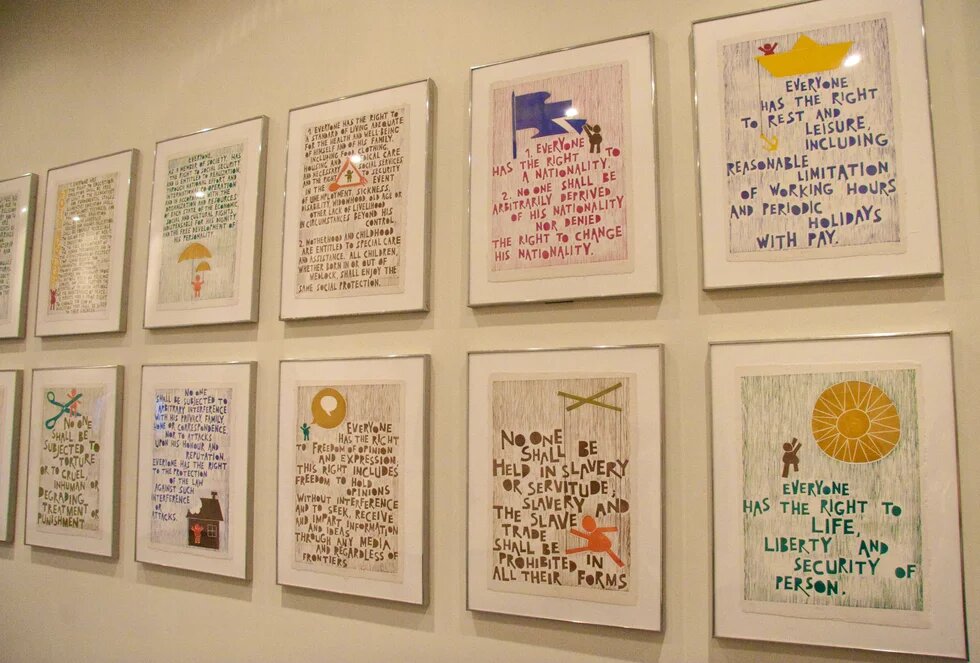 EVERYONE
AS A MEMBER OF SOCIETY, HAS
THE RIGHT TO SOCIAL SECURITY
AND IS ENTITLED TO REALIZATION,
THROUGH NATIONAL EFFORT AND
CO-OPERATION
AND IN ACCORDANCE WITH THE
ORGANIZATION AND RESOURCES
OF EACH STATE, OF THE ECONOMIC,
SOCIAL AND CULTURAL RIGHTS,
FOR HIS DIGNITY
AND THE FREE DEVELOPMENT OF
HIS PERSONALITY.
1. EVERYONE HAS THE RIGHT TO
A STANDARD OF LIVING ADEQUATE
FOR THE HEALTH AND WELL-BEING
OF HIMSELF AND OF HIS FAMILY,
INCLUDING FOOD, CLOTHING,
HOUSING AND MEDICAL CARE
AND NECESSARY SOCIAL SERVICES
AND THE RIGHT TO SECURITY
IN THE EVENT
OF UNEMPLOYMENT, SICKNESS,
DISABILITY, WIDOWHOOD, OLD AGE OR
OTHER LACK OF LIVELIHOOD
IN CIRCUMSTANCES BEYOND HIS
CONTROL.
2. MOTHERHOOD AND CHILDHOOD
ARE ENTITLED TO SPECIAL CARE
AND ASSISTANCE. ALL CHILDREN,
WHETHER BORN IN OR OUT OF
WEDLOCK, SHALL ENJOY THE
SAME SOCIAL PROTECTION.
1. EVERYONE
HAS THE RIGHT TO
A NATIONALITY.
2. NO ONE SHALL BE
ARBITRARILY DEPRIVED
OF HIS NATIONALITY
NOR DENIED
THE RIGHT TO CHANGE
HIS NATIONALITY.
EVERYONE
HAS THE RIGHT
TO REST AND
LEISURE,
INCLUDING
REASONABLE
LIMITATION
OF WORKING HOURS
AND PERIODIC
HOLIDAYS
WITH PAY.
NO ONE
SHALL BE
SUBJECTED TO
TORTURE
OR TO CRUEL,
INHUMAN OR
DEGRADING
TREATMENT OR
PUNISHMENT.
NO ONE
SHALL BE SUBJECTED TO
ARBITRARY INTERFERENCE
WITH HIS PRIVACY, FAMILY,
HOME OR CORRESPONDENCE,
NOR TO ATTACKS
UPON HIS HONOUR AND
REPUTATION.
EVERYONE HAS THE RIGHT
TO THE PROTECTION
OF THE LAW
AGAINST SUCH
INTERFERENCE
OR
ATTACKS.
EVERYONE
HAS THE RIGHT
TO FREEDOM OF OPINION
AND EXPRESSION.
THIS RIGHT INCLUDES
FREEDOM TO HOLD
OPINIONS
WITHOUT INTERFERENCE
AND TO SEEK, RECEIVE
AND IMPART INFORMATION
AND IDEAS
THROUGH ANY MEDIA
AND REGARDLESS OF
FRONTIERS
NO ONE
SHALL BE
HELD IN SLAVERY
OR SERVITUDE,
SLAVERY AND
THE SLAVE
TRADE
SHALL BE
PROHIBITED IN
ALL THEIR FORMS
EVERYONE
HAS THE RIGHT TO
LIFE,
LIBERTY AND
SECURITY OF
PERSON.